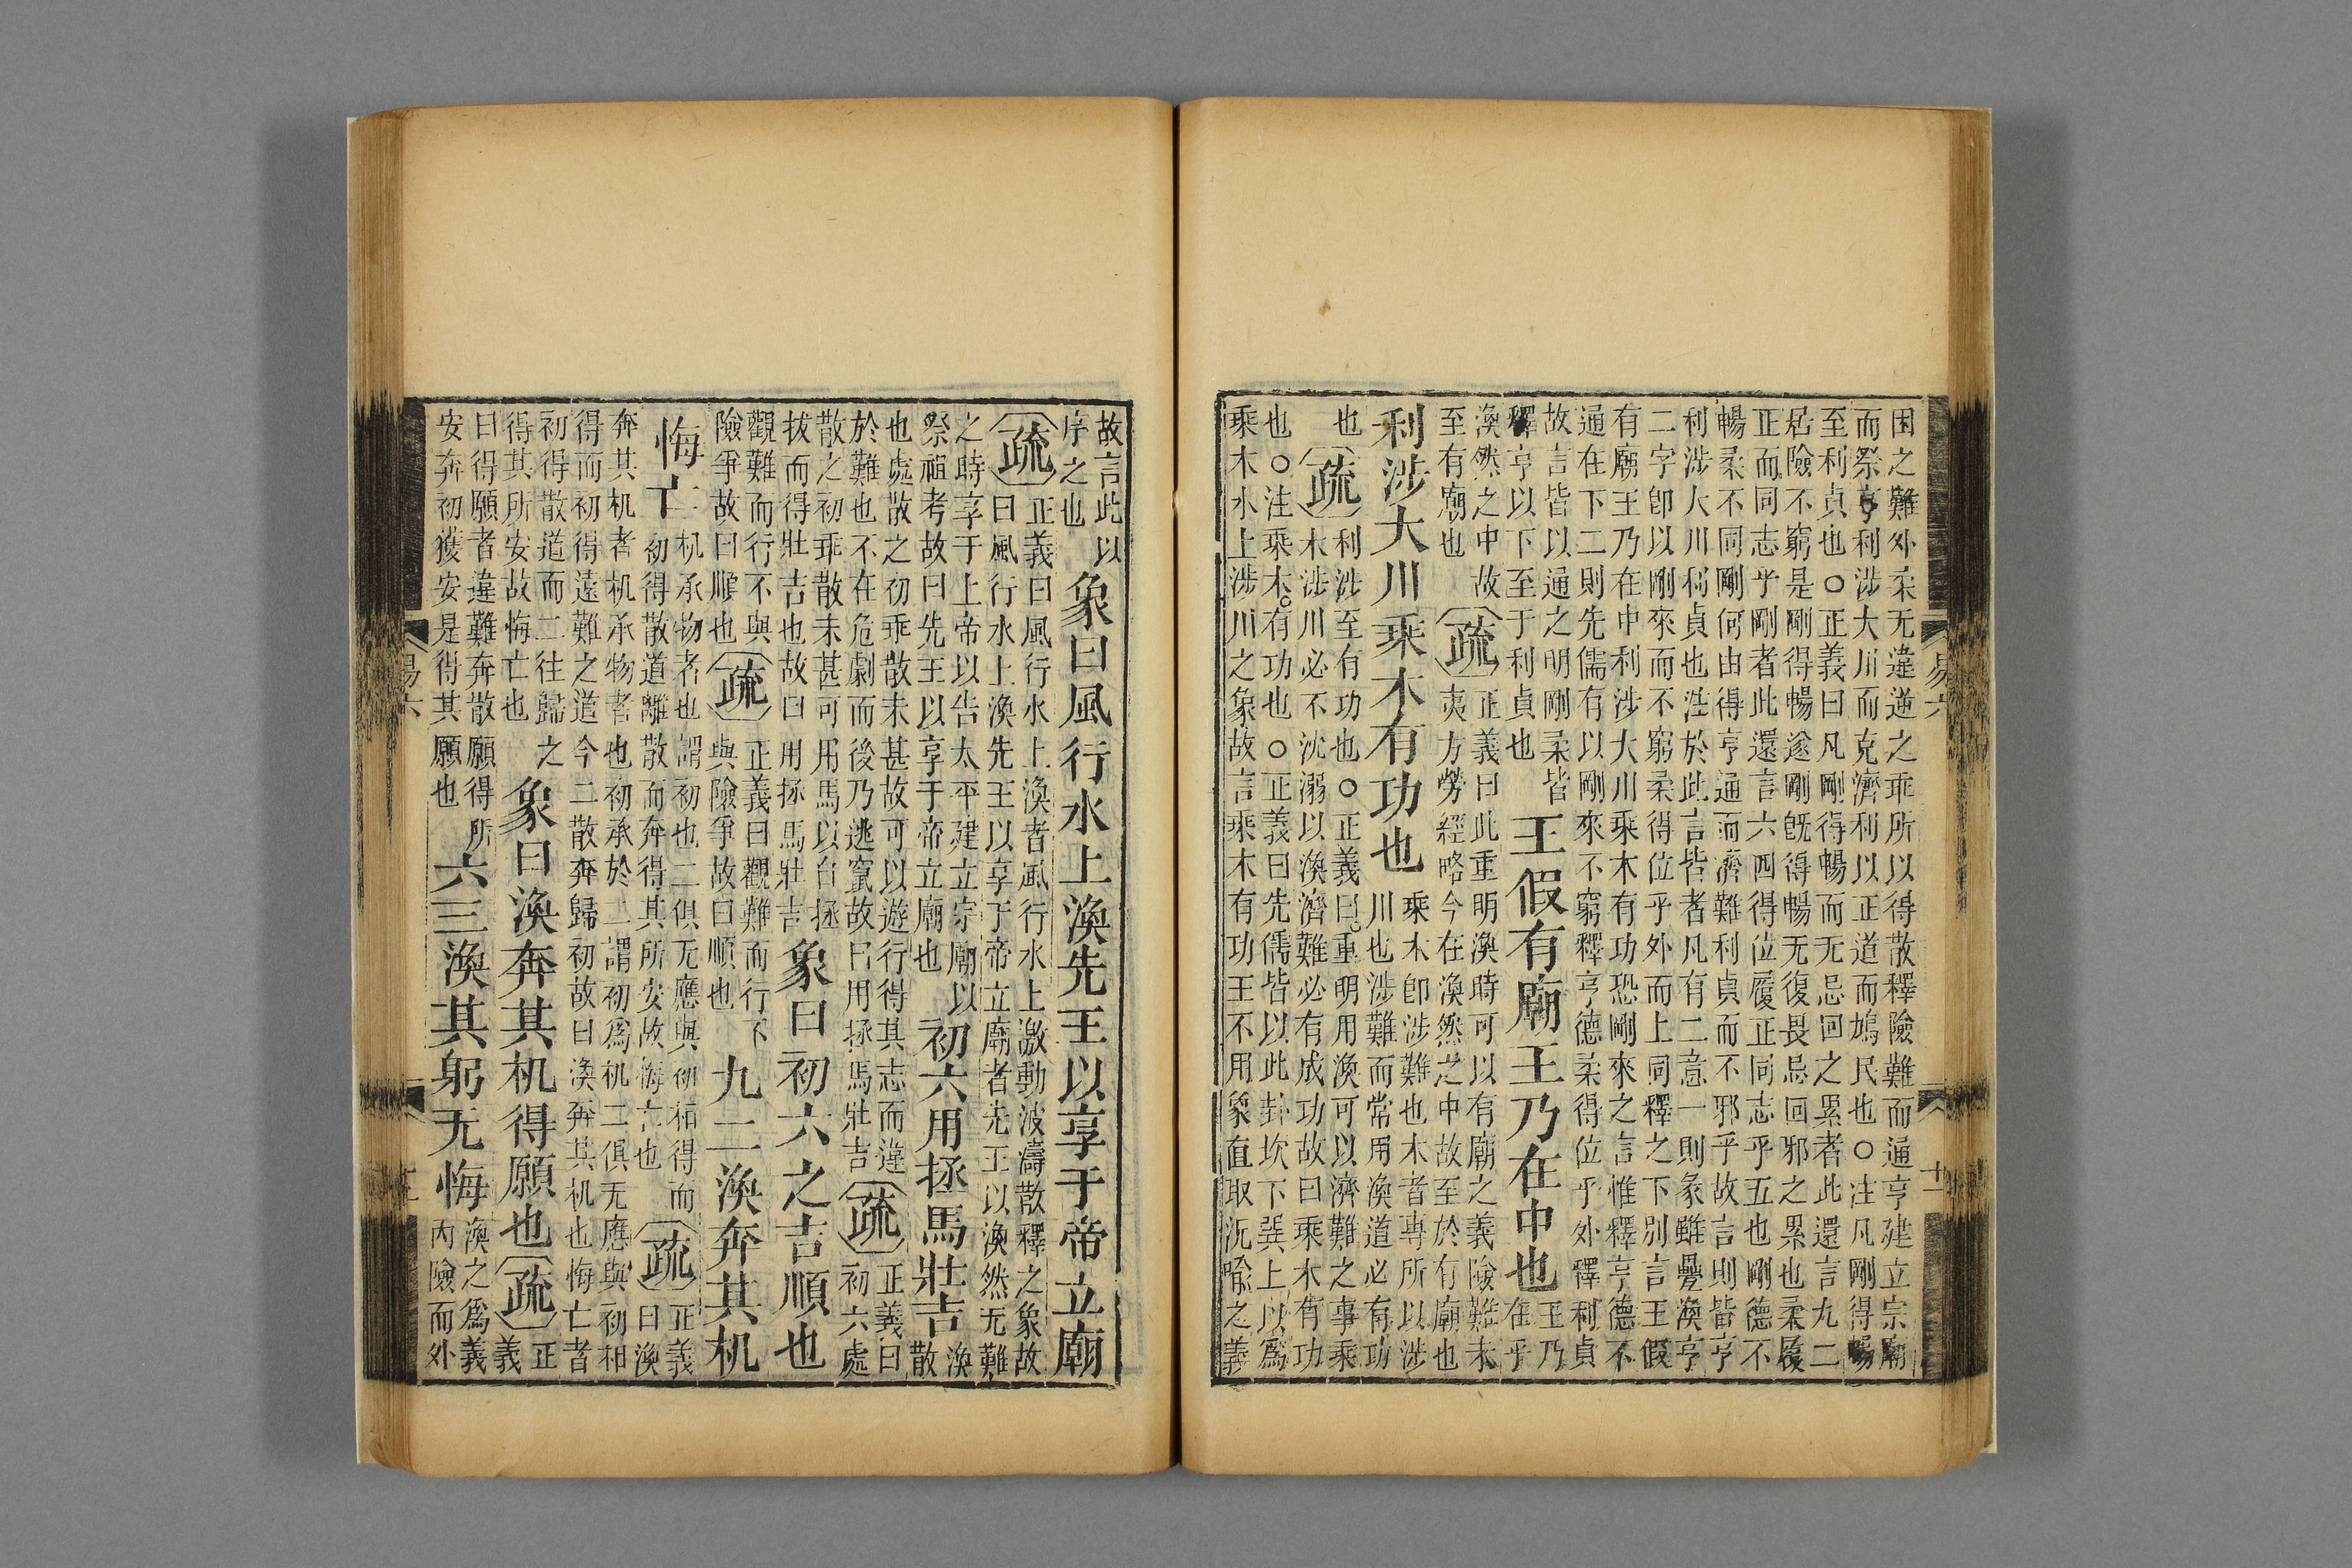 困之難外柔无違逆之乖所以得散釋險難而通亨建立宗廟
而祭享利涉大川而克濟利以正道而鳩民也○注凡剛得暢
至利貞也○正義曰凡剛得暢而无忌回之累者此還言九二
居險不窮是剛得暢遂剛既得暢无復畏忌回邪之累也柔履
正而同志乎剛者此還言六四得位履正同志乎五也剛德不
暢柔不同剛何由得亨通而濟難利貞而不邪乎故言則皆亨
利涉大川利貞也注於此言皆者凡有二意一則彖雖疊渙亨
二字卽以剛來而不窮柔得位乎外而上同釋之下別言王假
有廟王乃在中利涉大川乘木有功恐剛來之言惟釋亨德不
通在下二則先儒有以剛來不窮釋亨德柔得位乎外釋利貞
故言皆以通之明剛柔皆
釋亨以下至于利貞也
王假有廟王乃在中也
王乃
在乎
渙然之中故
至有廟也
疏
正義曰此重明渙時可以有廟之義險難未
夷方勞經略今在渙然之中故至於有廟也
利涉大川乘木有功也
乘木卽涉難也木者專所以涉
川也涉難而常用渙道必有功
也
疏
利涉至有功也○正義曰重明用渙可以濟難之事乘
木涉川必不沈溺以渙濟難必有成功故曰乘木有功
也○注乘木有功也○正義曰先儒皆以此卦坎下巽上以爲
乘木水上涉川之象故言乘木有功王不用象直取況喻之義
易六
十一
故言此以
序之也
象曰風行水上渙先王以享于帝立廟
疏
正義曰風行水上渙者風行水上激動波濤散釋之象故
曰風行水上渙先王以享于帝立廟者先王以渙然无難
之時享于上帝以告太平建立宗廟以
祭祖考故曰先王以享于帝立廟也
初六用拯馬壯吉
渙
散
也處散之初乖散未甚故可以遊行得其志而違
於難也不在危劇而後乃逃竄故曰用拯馬壯吉
疏
正義曰
初六處
散之初乖散未甚可用馬以自拯
拔而得壯吉也故曰用拯馬壯吉
象曰初六之吉順也
觀難而行不與
險爭故曰順也
疏
正義曰觀難而行不
與險爭故曰順也
九二渙奔其机
悔亡
机承物者也謂初也二俱无應與初相得而
初得散道離散而奔得其所安故悔亡也
疏
正義
曰渙
奔其机者机承物者也初承於二謂初爲机二俱无應與初相
得而初得遠難之道今二散奔歸初故曰渙奔其机也悔亡者
初得散道而二往歸之
得其所安故悔亡也
象曰渙奔其机得願也
疏
正
義
曰得願者違難奔散願得所
安奔初獲安是得其願也
六三渙其躬无悔
渙之爲義
內險而外
易六